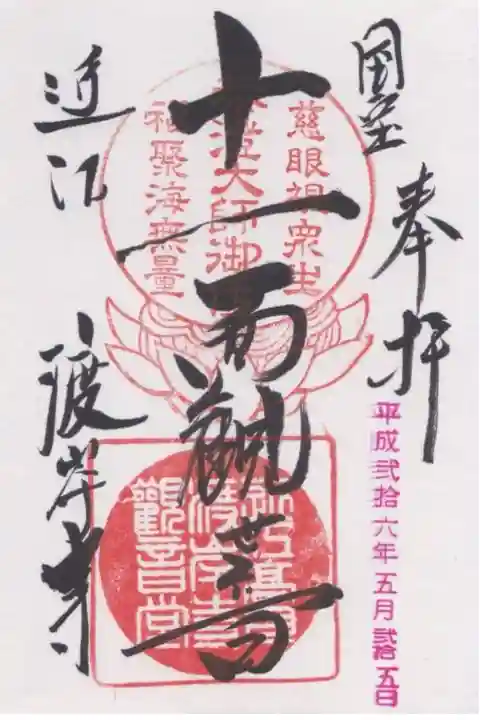 國宝 奉拝
平成弐拾六年五月弐拾五日
十一面観世音
慈眼視衆生
大師御
福聚海無量
渡岸寺
觀音堂
近江 渡岸寺